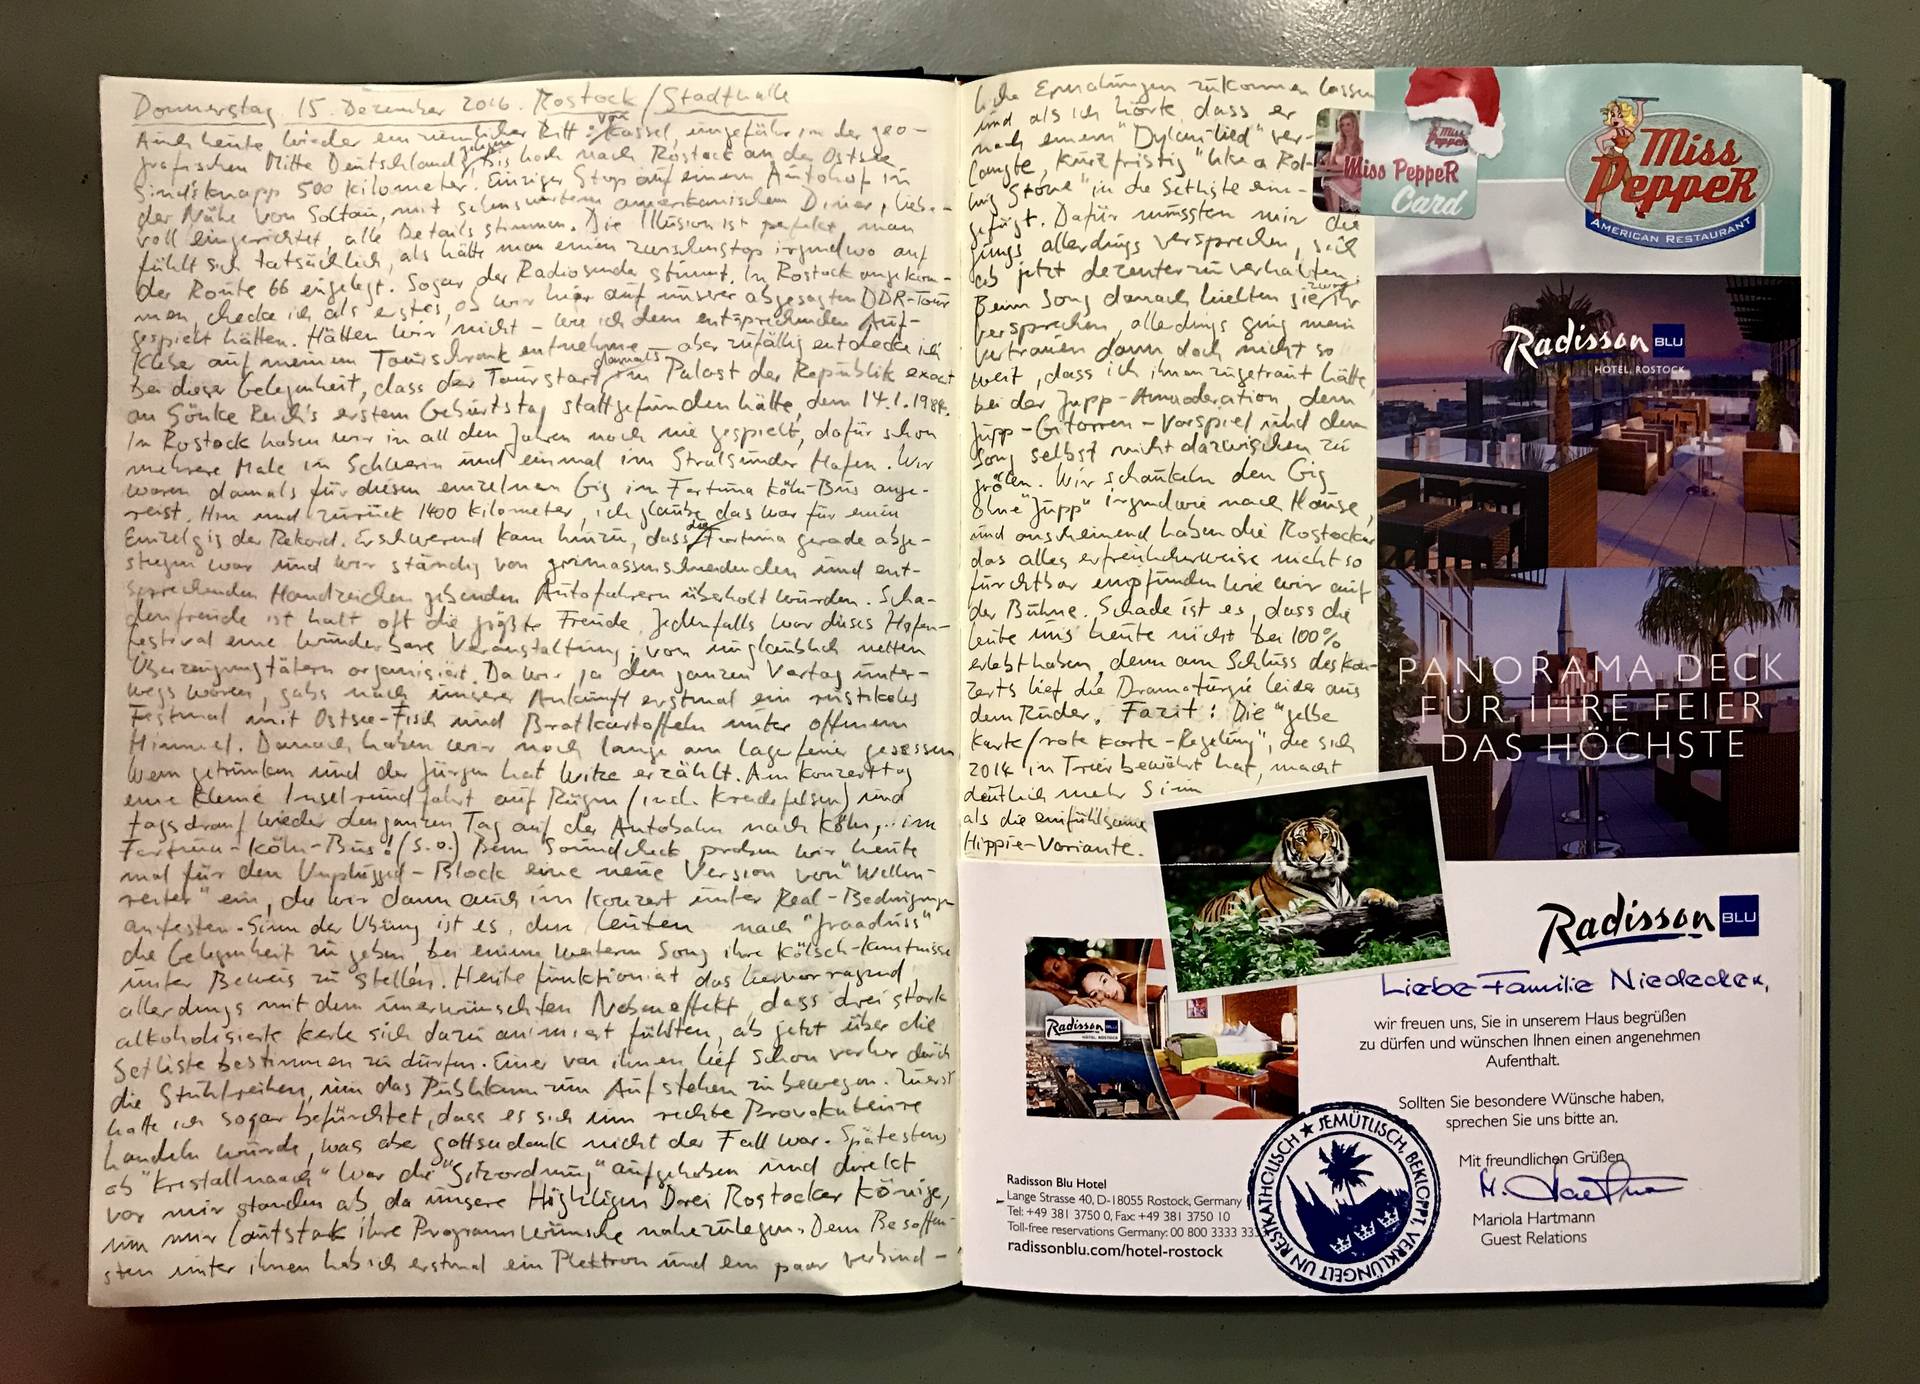 Donnerstag 15. Dezember 2016. Rostock/Stadthalle
Auch heute wieder ein ziemlicher Ritt: von Kassel, ungefähr in der geo-
grafischen Mitte Deutschlands gelegen, bis hoch nach Rostock an der Ostsee
sind's knapp 500 Kilometer. Einziger Stop auf einem Autohof in
der Nähe von Soltau, mit sehenswertem amerikanischem Diner, lieb-
voll eingerichtet, alle Details stimmen. Die Illusion ist perfekt, man
fühlt sich tatsächlich, als hätte man einen Zwischenstop irgendwo auf
der Route 66 eingelegt. Sogar der Radiosender stimmt. In Rostock angekom-
men, checke ich als erstes, ob wir hier auf unserer abgesagten DDR-Tour
gespielt hätten. Hätten wir nicht – wie ich dem entsprechenden Auf-
kleber auf meinem Tourschrank entnehme – aber zufällig entdecke ich
bei dieser Gelegenheit, dass der Tourstart damals im Palast der Republik exact
an Sönke Reich's erstem Geburtstag stattgefunden hätte, dem 14.1.1984.
In Rostock haben wir in all den Jahren noch nie gespielt, dafür schon
mehrere Male in Schwerin und einmal im Stralsunder Hafen. Wir
waren damals für diesen einzelnen Gig im Fortuna Köln-Bus ange-
reist. Hin und zurück 1400 Kilometer, ich glaube das war für einen
Einzelgig der Rekord. Erschwerend kam hinzu, dass die Fortuna gerade abge-
stiegen war und wir ständig von grimassenschneidenden und ent-
sprechenden Handzeichen gebenden Autofahrern überholt wurden. Scha-
denfreude ist halt oft die größte Freude. Jedenfalls war dieses Hafen-
festival eine wunderbare Veranstaltung, von unglaublich netten
Überzeugungstätern organisiert. Da wir ja den ganzen Vortag unter-
wegs waren, gabs nach unserer Ankunft erstmal ein rustikales
Festmal mit Ostsee-Fisch und Bratkartoffeln unter offenem
Himmel. Danach haben wir noch lange am Lagerfeuer gesessen
Wein getrunken und der Jürgen hat Witze erzählt. Am Konzerttag
eine kleine Inselrundfahrt auf Rügen (incl. Kreidefelsen) und
tags drauf wieder den ganzen Tag auf der Autobahn nach Köln, im
Fortuna-Köln-Bus! (s.o.) Beim Soundcheck proben wir heute
mal für den Unplugged-Block eine neue Version von "Wellen-
reiter" ein, die wir dann auch im Konzert unter Real-Bedingungen
antesten. Sinn der Übung ist es, den Leuten nach "Jraaduss"
die Gelegenheit zu geben, bei einem weiteren Song ihre Kölsch-Kenntnisse
unter Beweis zu stellen. Heute funktioniert das hervorragend,
allerdings mit dem unerwünschten Nebeneffekt, dass drei stark
alkoholisierte Kerle sich dazu animiert fühlten, ab jetzt über die
Setliste bestimmen zu dürfen. Einer von ihnen lief schon vorher durch
die Stuhlreihen, um das Publikum zum Aufstehen zu bewegen. Zuerst
hatte ich sogar befürchtet, dass es sich um rechte Provokateure
handeln würde, was aber gottseidank nicht der Fall war. Spätestens
ab "Kristallnaach" war die "Sitzordnung" aufgehoben und direkt
vor mir standen ab da unsere Heiligen Drei Rostocker Könige,
um mir lautstark ihre Programmwünsche nahezulegen. Dem Besoffen-
sten unter ihnen hab ich erstmal ein Plektron und ein paar verbind-
liche Ermahnungen zukommen lassen
und als ich hörte, dass er
nach einem "Dylan-Lied" ver-
langte, kurzfristig "Like a Rol-
ling Stone" in die Setliste ein-
gefügt. Dafür mussten mir die
Jungs allerdings versprechen, sich
ab jetzt dezenter zu verhalten.
Beim Song danach hielten sie zwar ihr
Versprechen, allerdings ging mein
Vertrauen dann doch nicht so
weit, dass ich ihnen zugetraut hätte,
bei der Jupp-Anmoderation, dem
Jupp-Gitarren-Vorspiel und dem
Song selbst nicht dazwischen zu
grölen. Wir schaukeln den Gig
ohne "Jupp" irgendwie nach Hause,
und anscheinend haben die Rostocker
das alles erfreulicherweise nicht so
furchtbar empfunden wie wir auf
der Bühne. Schade ist es, dass die
Leute uns heute nicht bei 100%
erlebt haben, denn am Schluss des Kon-
zerts lief die Dramaturgie leider aus
dem Ruder. Fazit: Die "gelbe
Karte/rote Karte-Regelung", die sich
2014 in Trier bewährt hat, macht
deutlich mehr Sinn
als die einfühlsame
Hippie-Variante.
Miss PeppeR
Card
Miss
PeppeR
AMERICAN RESTAURANT
Radisson BLU
HOTEL, ROSTOCK
PANORAMA DECK
FÜR IHRE FEIER
DAS HÖCHSTE
Radisson BLU
Radisson BLU
HOTEL, ROSTOCK
Liebe Familie Niedecken,
wir freuen uns, Sie in unserem Haus begrüßen
zu dürfen und wünschen Ihnen einen angenehmen
Aufenthalt.
Sollten Sie besondere Wünsche haben,
sprechen Sie uns bitte an.
Mit freundlichen Grüßen
M. Hartmann
Mariola Hartmann
Guest Relations
Radisson Blu Hotel
Lange Strasse 40, D-18055 Rostock, Germany
Tel: +49 381 3750 0, Fax: +49 381 3750 10
Toll-free reservations Germany: 00 800 3333 333
radissonblu.com/hotel-rostock
RESTKATHOLISCH ★ JEMÜTLISCH, BEKLOPPT, VERKLÜNGELT UN